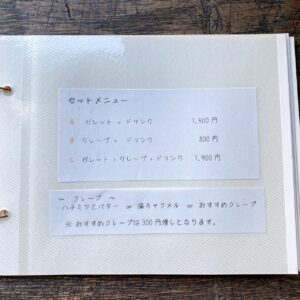 セットメニュー
A ガレット + ドリンク 1,500円
B クレープ + ドリンク 800円
C ガレット + クレープ + ドリンク 1,900円
~ クレープ ~
ハチミツとバター or 塩キャラメル or おすすめクレープ
※ おすすめクレープは300円増しとなります。